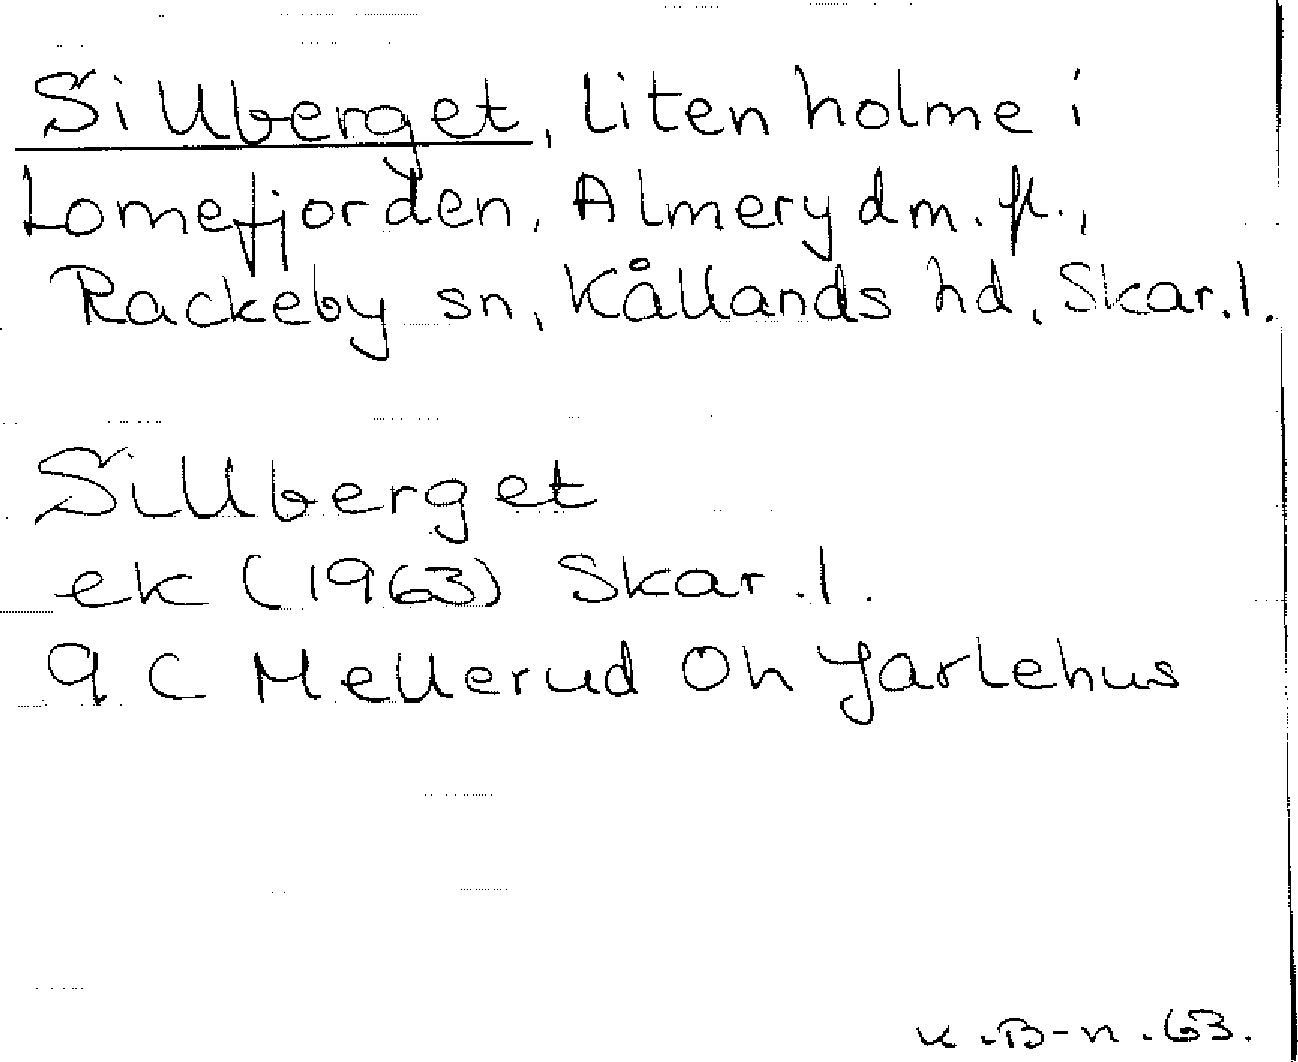 Sillberget, liten holme i
Lomefjorden, Almeryd m.fl.,
Rackeby sn, Kållands hd, Skar.l.
Sillberget
ek (1963) Skar.l.
9 C Mellerud Öh Jarlehus
K.B-n.63.